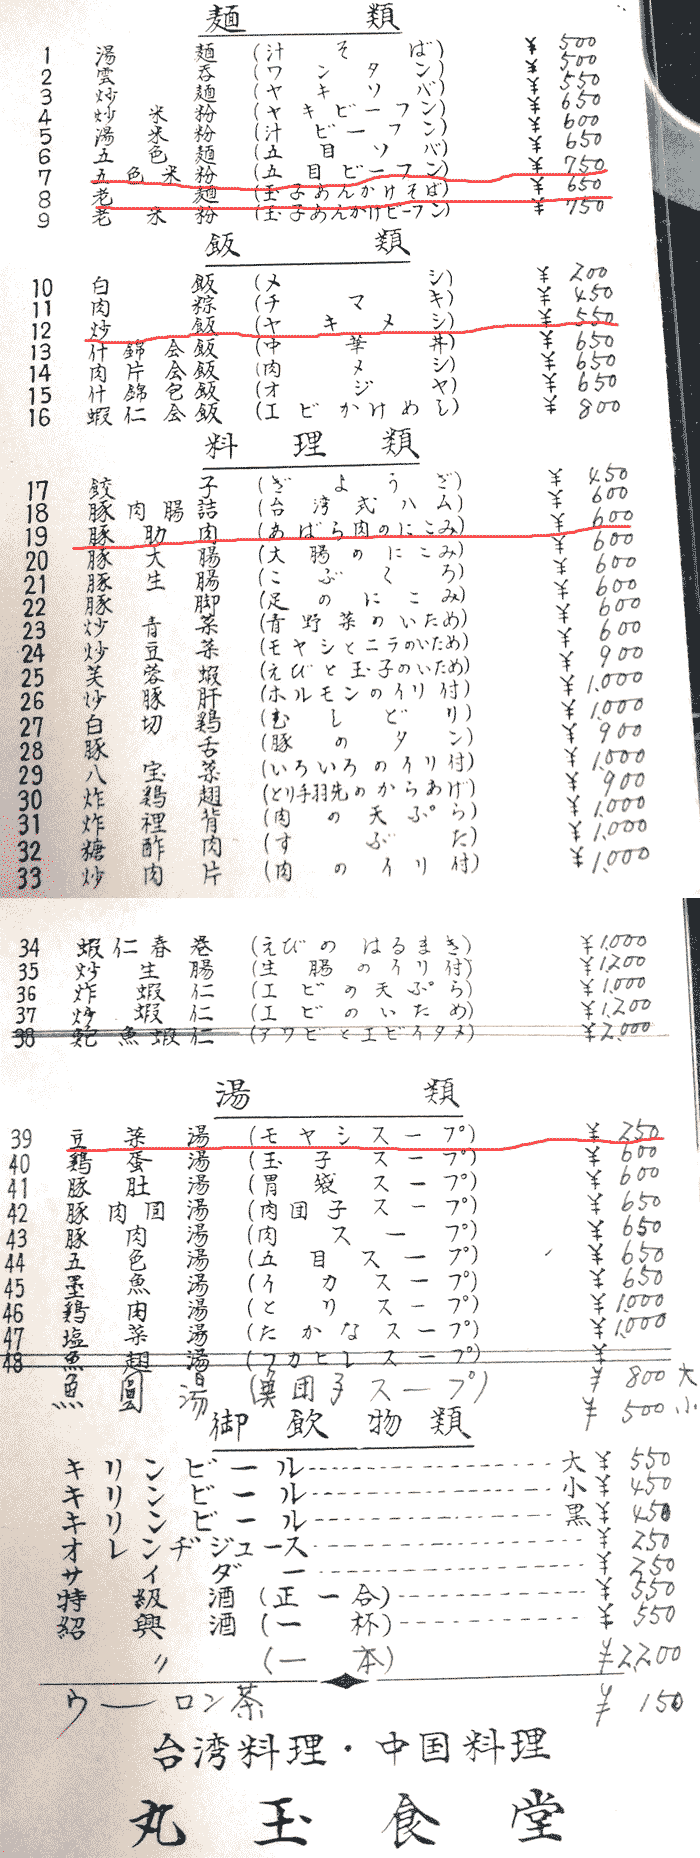 麺類
1 湯麺 (汁そば) ¥500
2 雲呑 (ワンタン) ¥500
3 炒麺 (ヤキソバ) ¥550
4 炒米粉 (ヤキビーフン) ¥650
5 湯米粉 (汁ビーフン) ¥600
6 五色麺 (五目ソバ) ¥650
7 五色米粉 (五目ビーフン) ¥750
8 老麺 (玉子あんかけそば) ¥650
9 老米粉 (玉子あんかけビーフン) ¥750
飯類
10 白飯 (メシ) ¥200
11 肉粽 (チマキ) ¥450
12 炒飯 (ヤキメシ) ¥550
13 什錦会飯 (中華丼) ¥650
14 肉片会飯 (肉メシ) ¥650
15 什錦包飯 (オジヤ) ¥650
16 蝦仁会飯 (エビかけめし) ¥800
料理類
17 餃子 (ぎようざ) ¥450
18 豚肉腸詰 (台湾式ハム) ¥600
19 豚肋肉 (あばら肉のにこみ) ¥600
20 豚大腸 (大腸のにこみ) ¥600
21 豚生腸 (こぶくろ) ¥600
22 豚脚 (足のにこみ) ¥600
23 炒青菜 (青野菜のいため) ¥600
24 炒豆菜 (モヤシとニラのいため) ¥600
25 芙蓉蝦 (えびと玉子のいため) ¥900
26 炒豚肝 (ホルモンのイリ付) ¥1,000
27 白切鶏 (むしどり) ¥1,000
28 豚舌 (豚のタン) ¥900
29 八宝菜 (いろいろのイリ付) ¥1,000
30 炸鶏翅 (とり手羽先のからあげ) ¥900
31 炸裡背 (肉の天ぷら) ¥1,000
32 糖酢肉 (すぶた) ¥1,000
33 炒肉片 (肉のイリ付) ¥1,000
34 蝦仁春巻 (えびのはるまき) ¥1,000
35 炒生腸 (生腸のイリ付) ¥1,200
36 炸蝦仁 (エビの天ぷら) ¥1,000
37 炒蝦仁 (エビのいため) ¥1,200
38 鮑魚蝦仁 (アワビとエビイタメ) ¥2,000
湯類
39 豆菜湯 (モヤシスープ) ¥250
40 鶏蛋湯 (玉子スープ) ¥600
41 豚肚湯 (胃袋スープ) ¥600
42 豚肉団湯 (肉団子スープ) ¥650
43 豚肉湯 (肉スープ) ¥650
44 五色湯 (五目スープ) ¥650
45 墨魚湯 (イカスープ) ¥650
46 鶏肉湯 (とりスープ) ¥1,000
47 塩菜湯 (たかなスープ) ¥1,000
48 魚翅湯 (フカヒレスープ) ¥
魚圓湯 (魚団子スープ) ¥800 大
¥500 小
御飲物類
キリンビール 大 ¥550
キリンビール 小 ¥450
キリンビール 黒 ¥450
オレンヂジュース ¥250
サイダー ¥250
特級酒 (正一合) ¥550
紹興酒 (一杯) ¥550
〃 (一本) ¥2,200
ウーロン茶 ¥150
台湾料理・中国料理
丸玉食堂